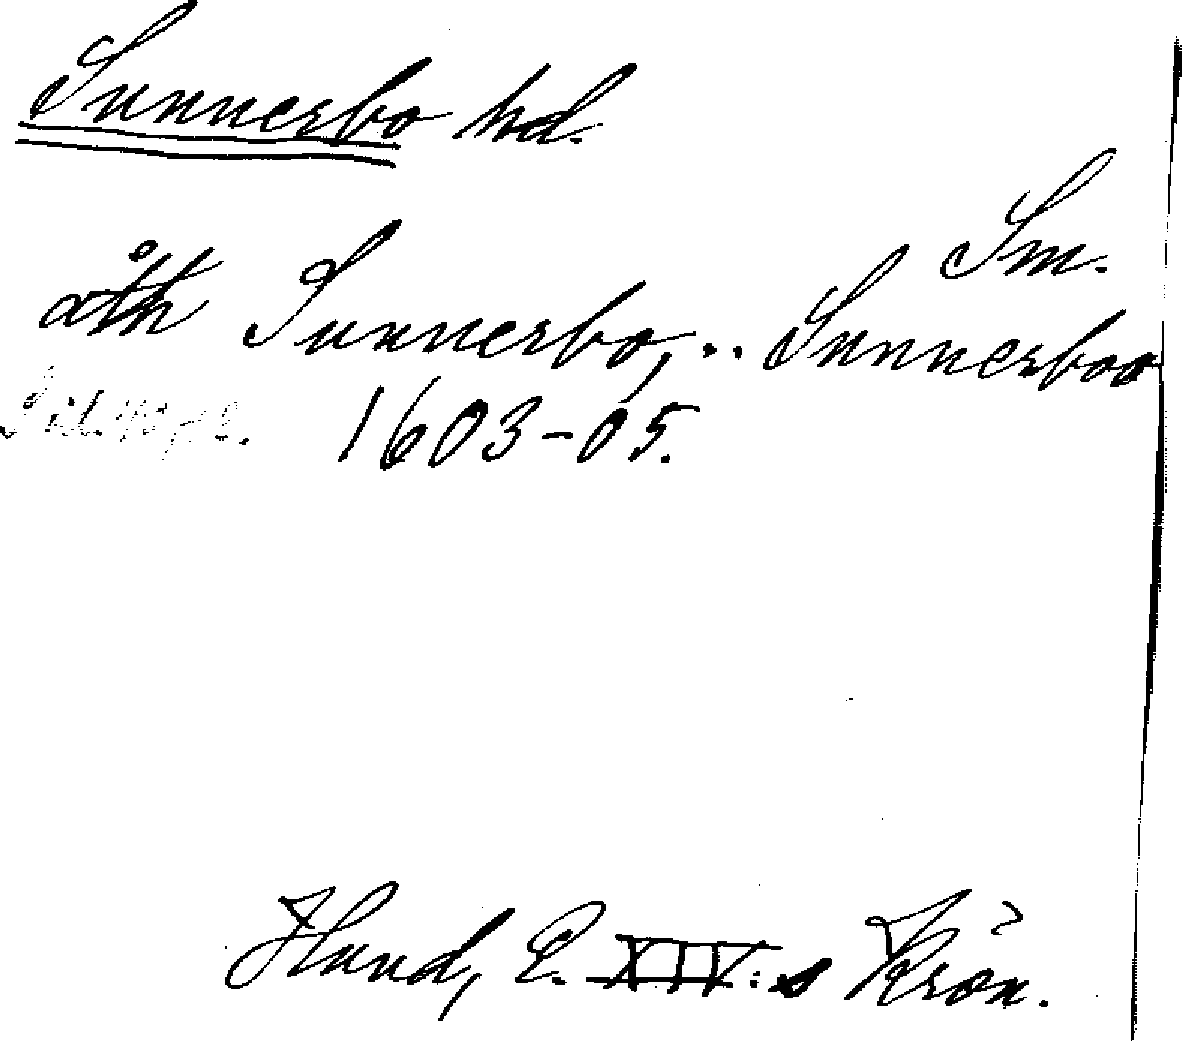 Sunnerbo hd.
Sm.
åth Sunnerbo, .. Sunnerboo
1603-05.
Hund, E. XIV:s Krön.